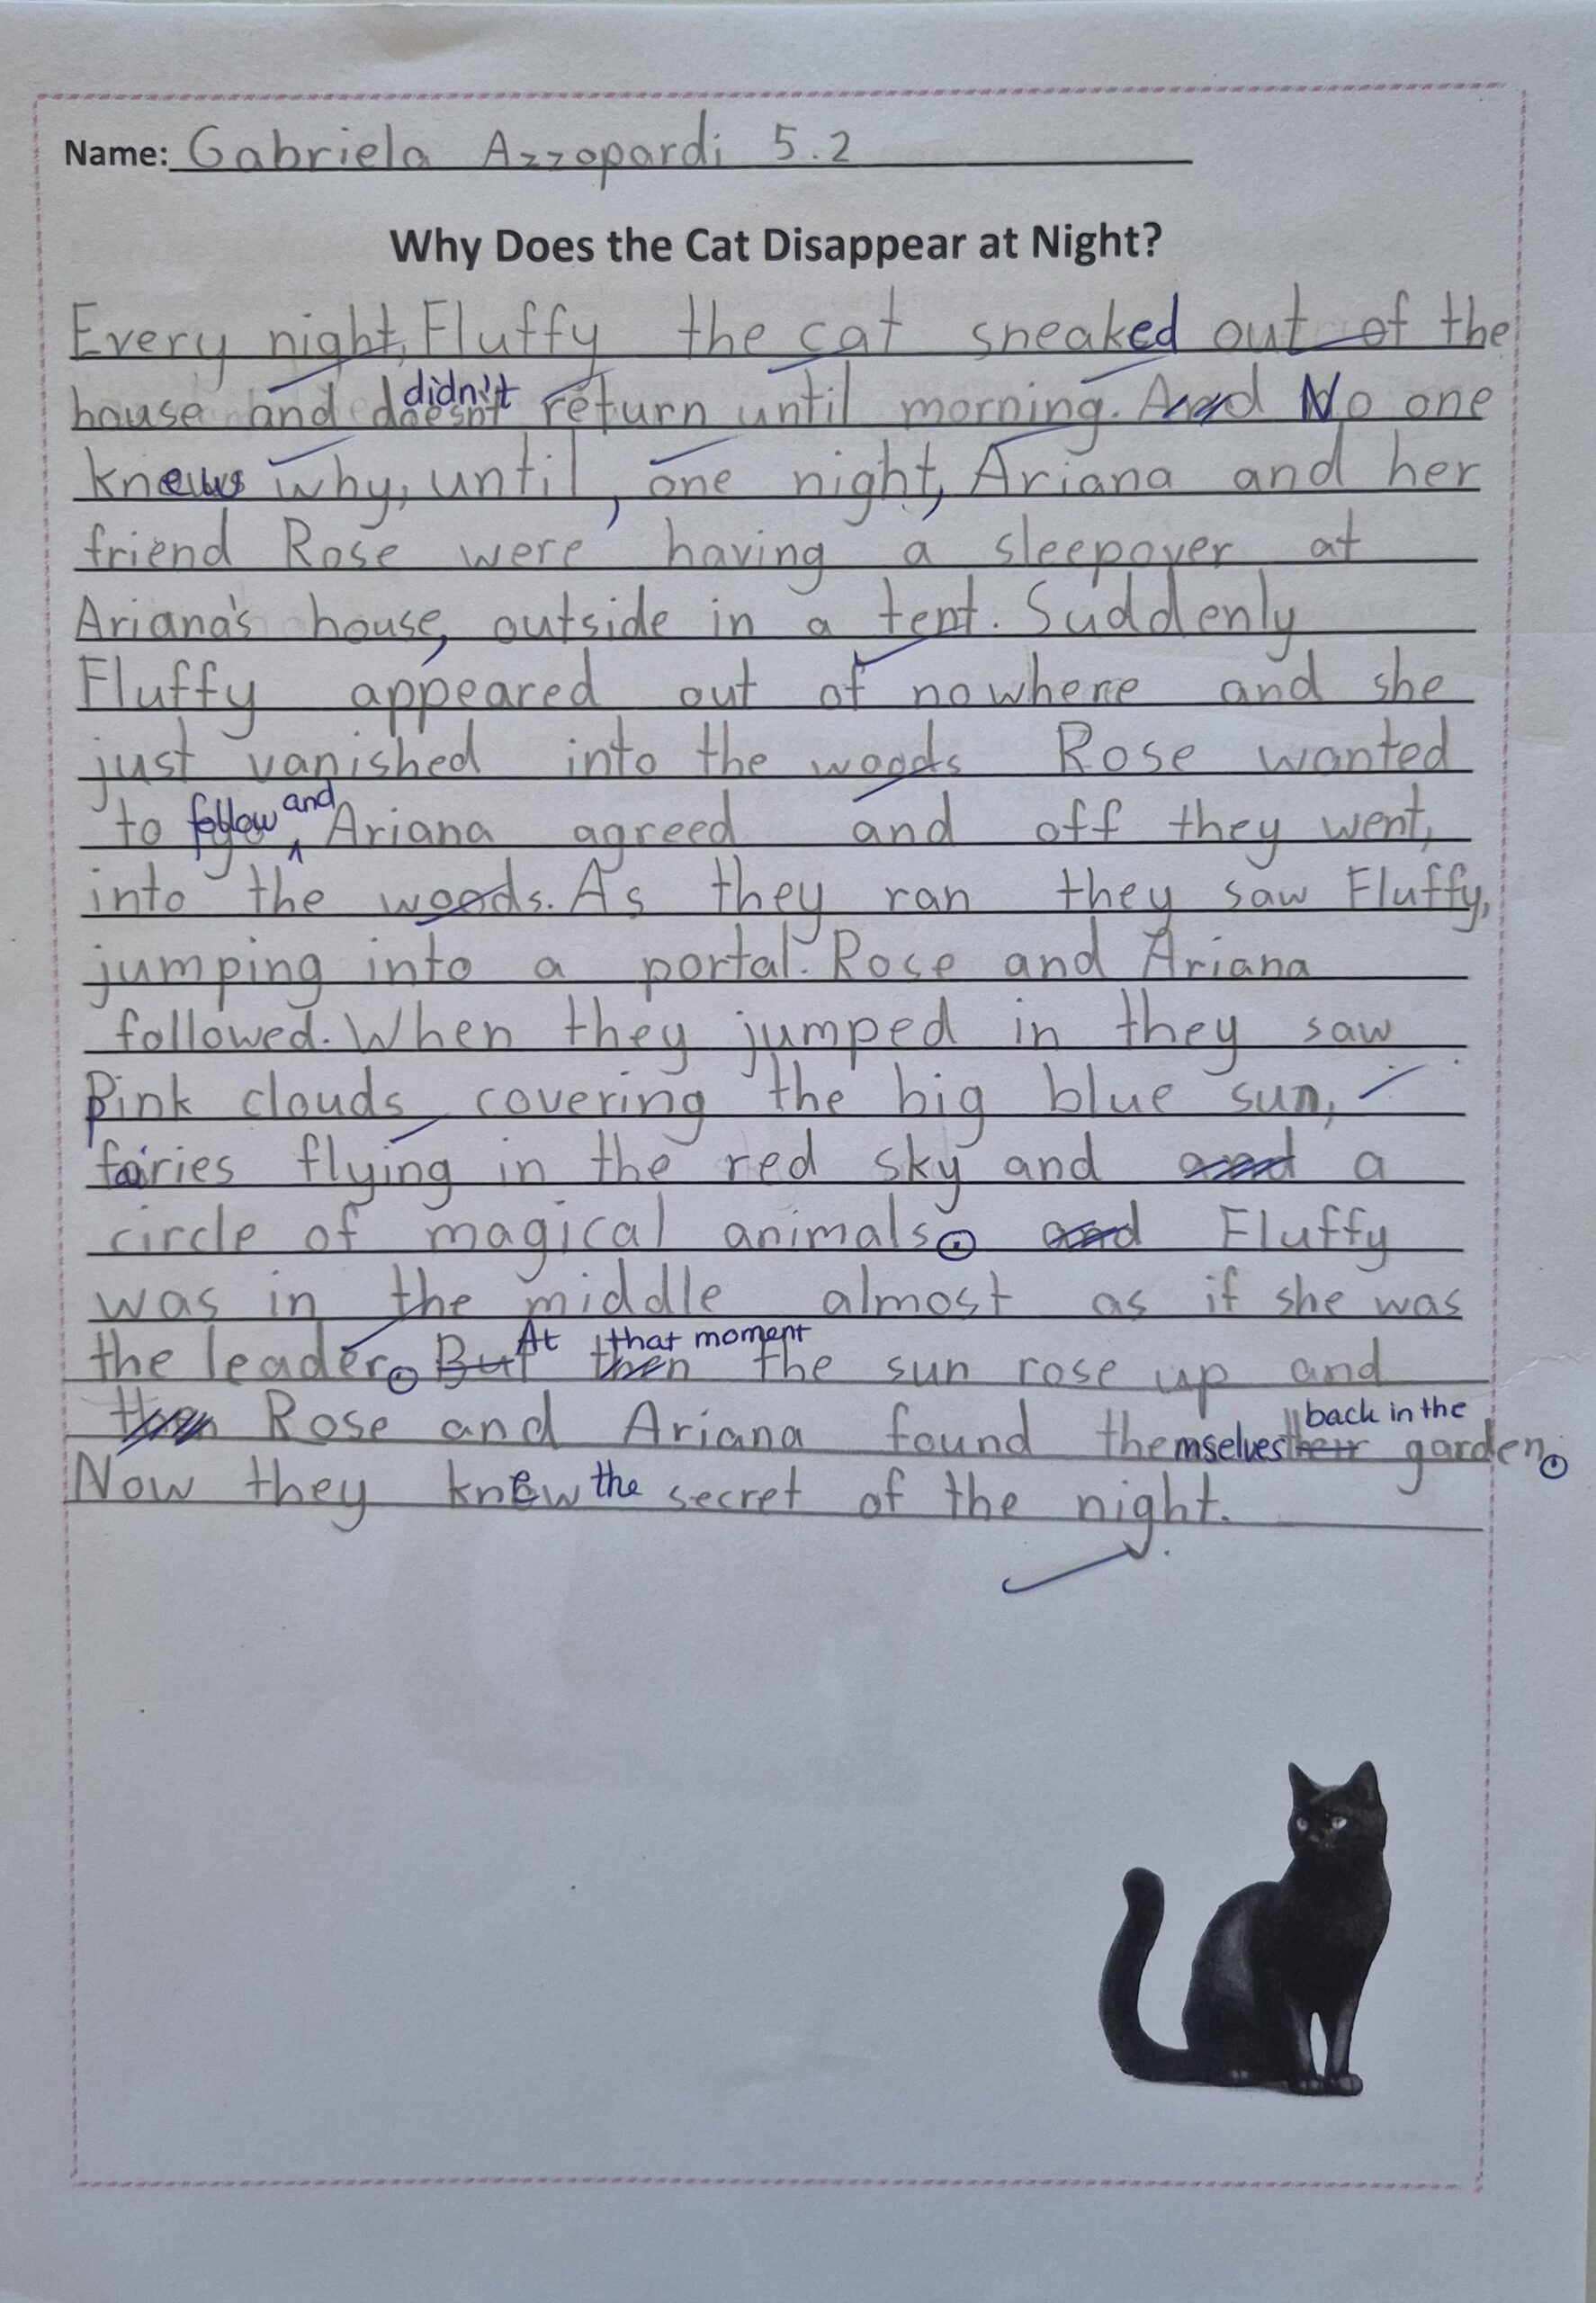 Name: Gabriela Azzopardi 5.2
Why Does the Cat Disappear at Night?
Every night, Fluffy the cat sneaked out of the
didn't
house and doesn't return until morning. And No one
knew why, until, one night, Ariana and her
friend Rose were having a sleepover at
Ariana's house, outside in a tent. Suddenly
Fluffy appeared out of nowhere and she
just vanished into the woods Rose wanted
and
to follow Ariana agreed and off they went,
into the woods. As they ran they saw Fluffy,
jumping into a portal. Rose and Ariana
followed. When they jumped in they saw
pink clouds covering the big blue sun,
fairies flying in the red sky and and a
circle of magical animals. and Fluffy
was in the middle almost as if she was
At that moment
the leader. But then the sun rose up and
back in the
then Rose and Ariana found themselves their garden.
Now they knew the secret of the night.